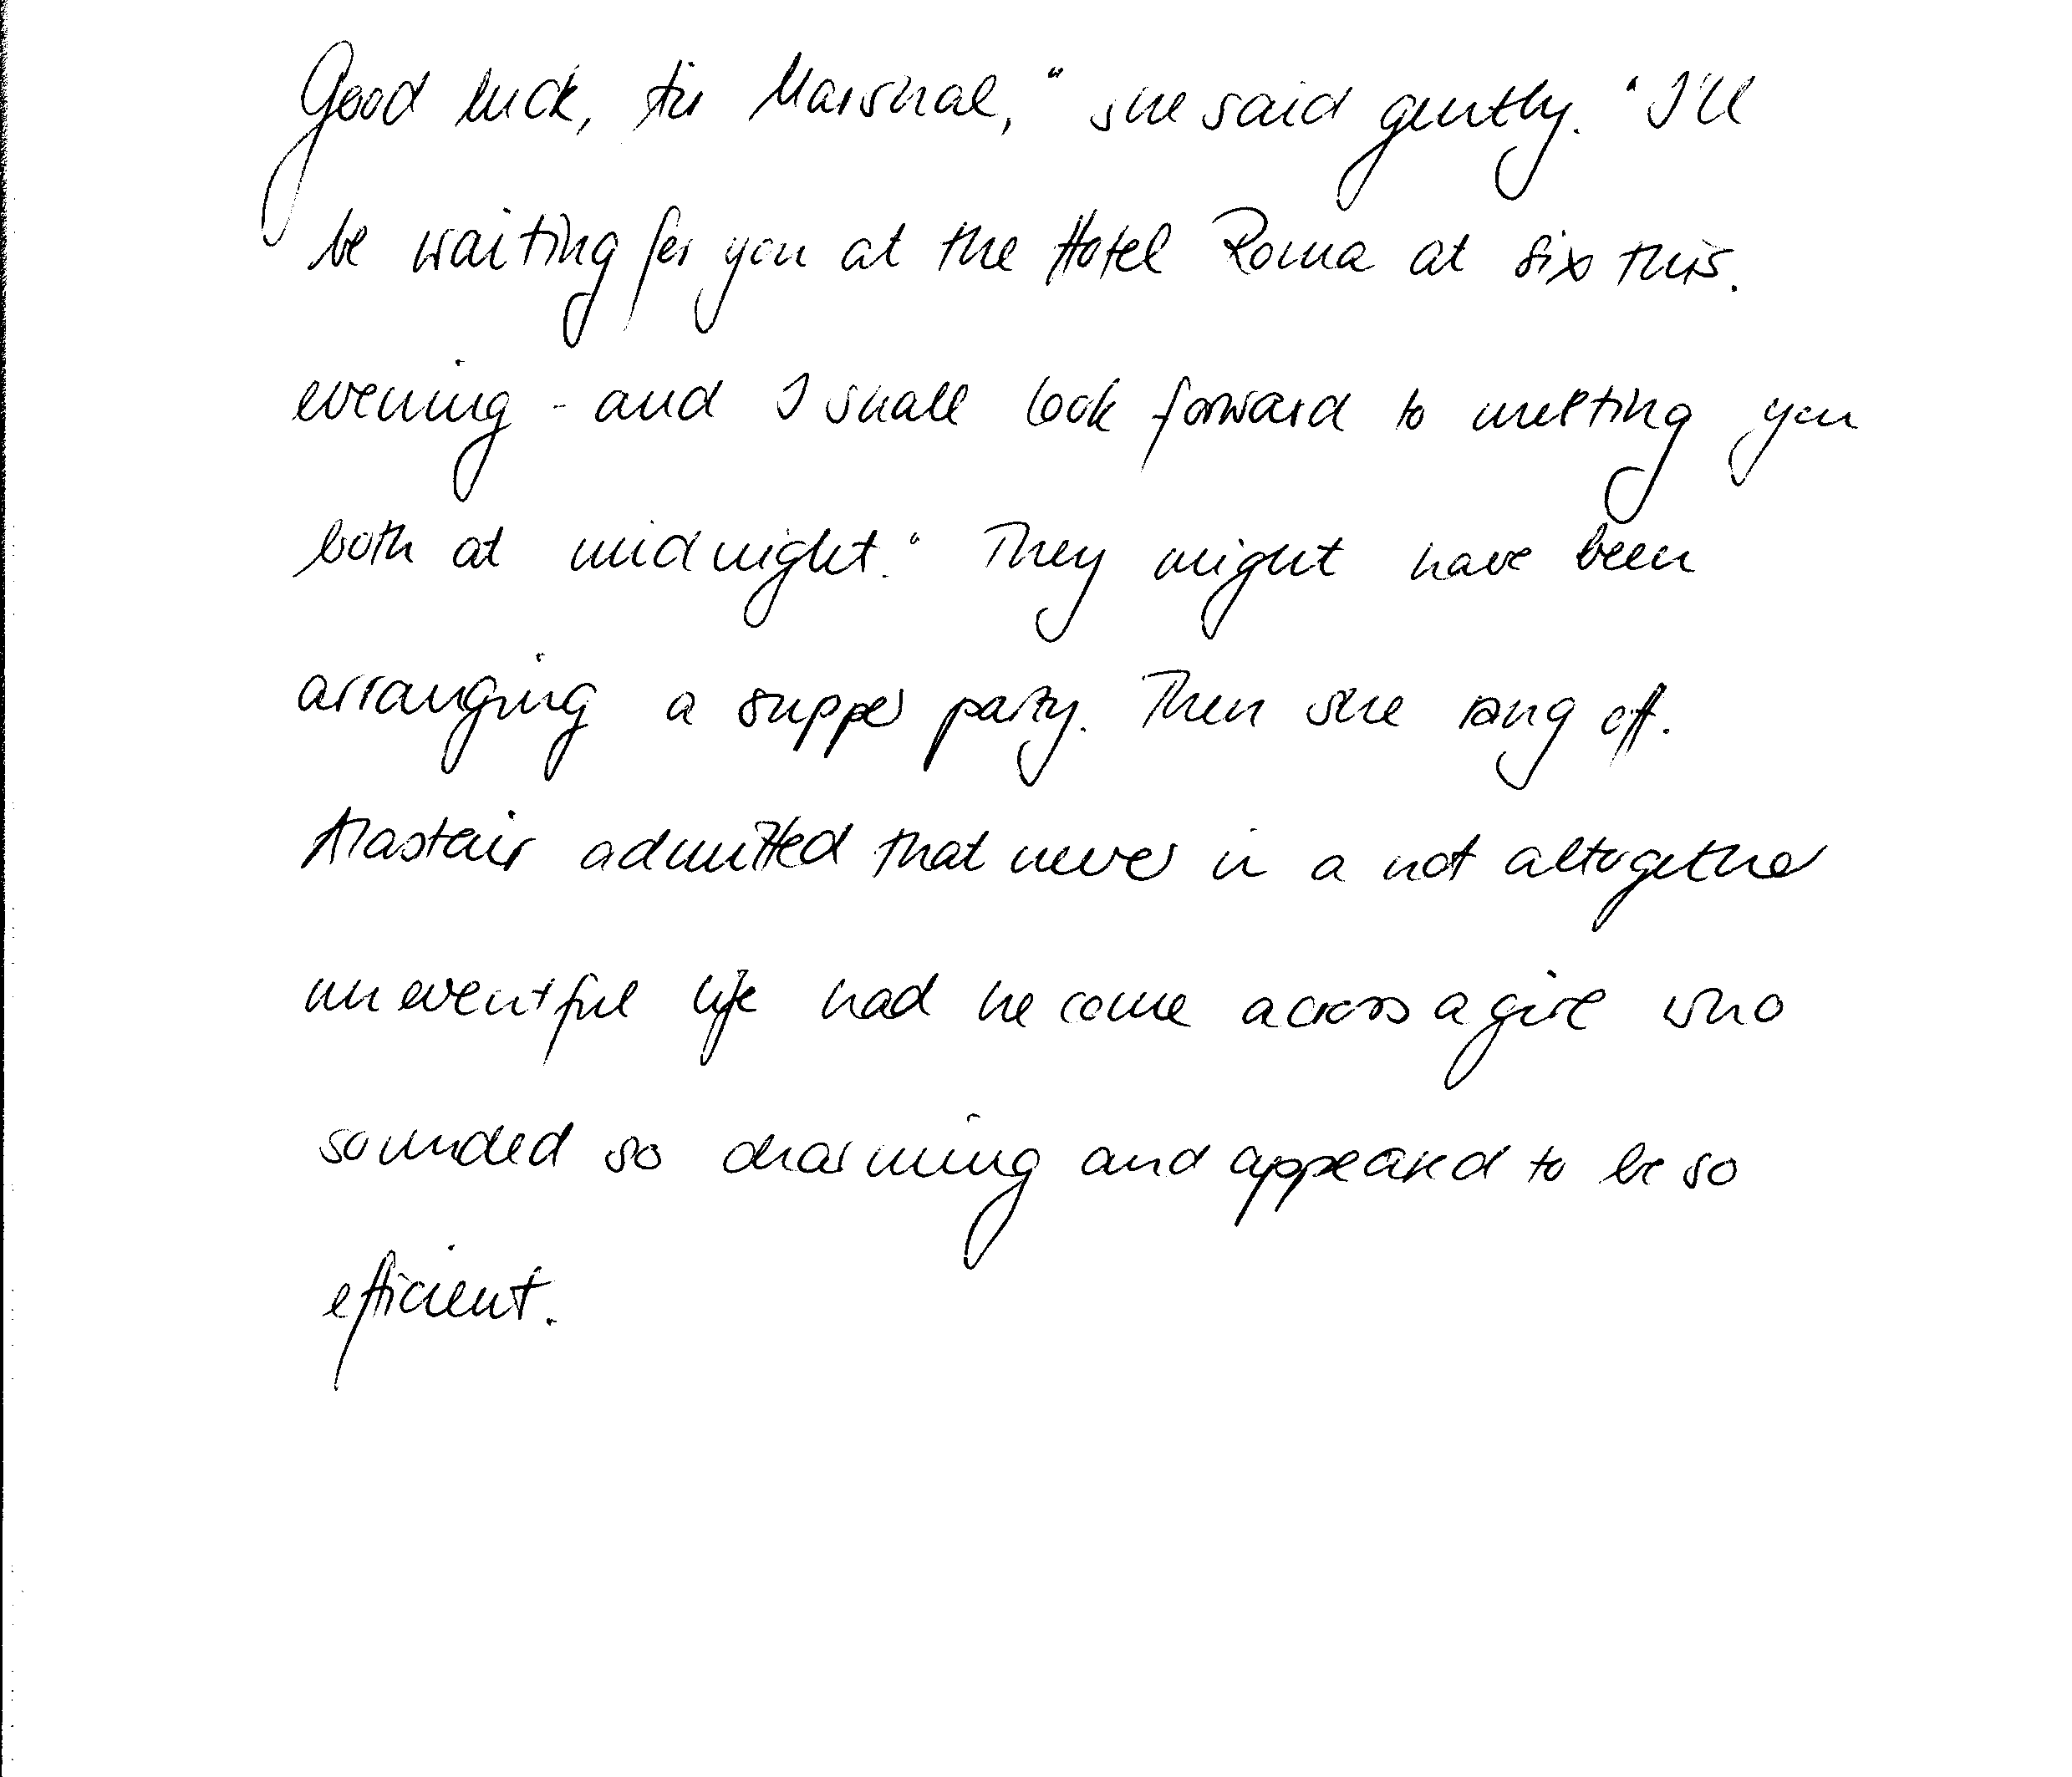 Good luck, Air Marshal," she said gently. "I'll
be waiting for you at the Hotel Roma at six this.
evening - and I shall look forward to meeting you
both at midnight." They might have been
arranging a supper party. Then she rang off.
Alastair admitted that never in a not altogether
uneventful life had he come across a girl who
sounded so charming and appeared to be so
efficient.